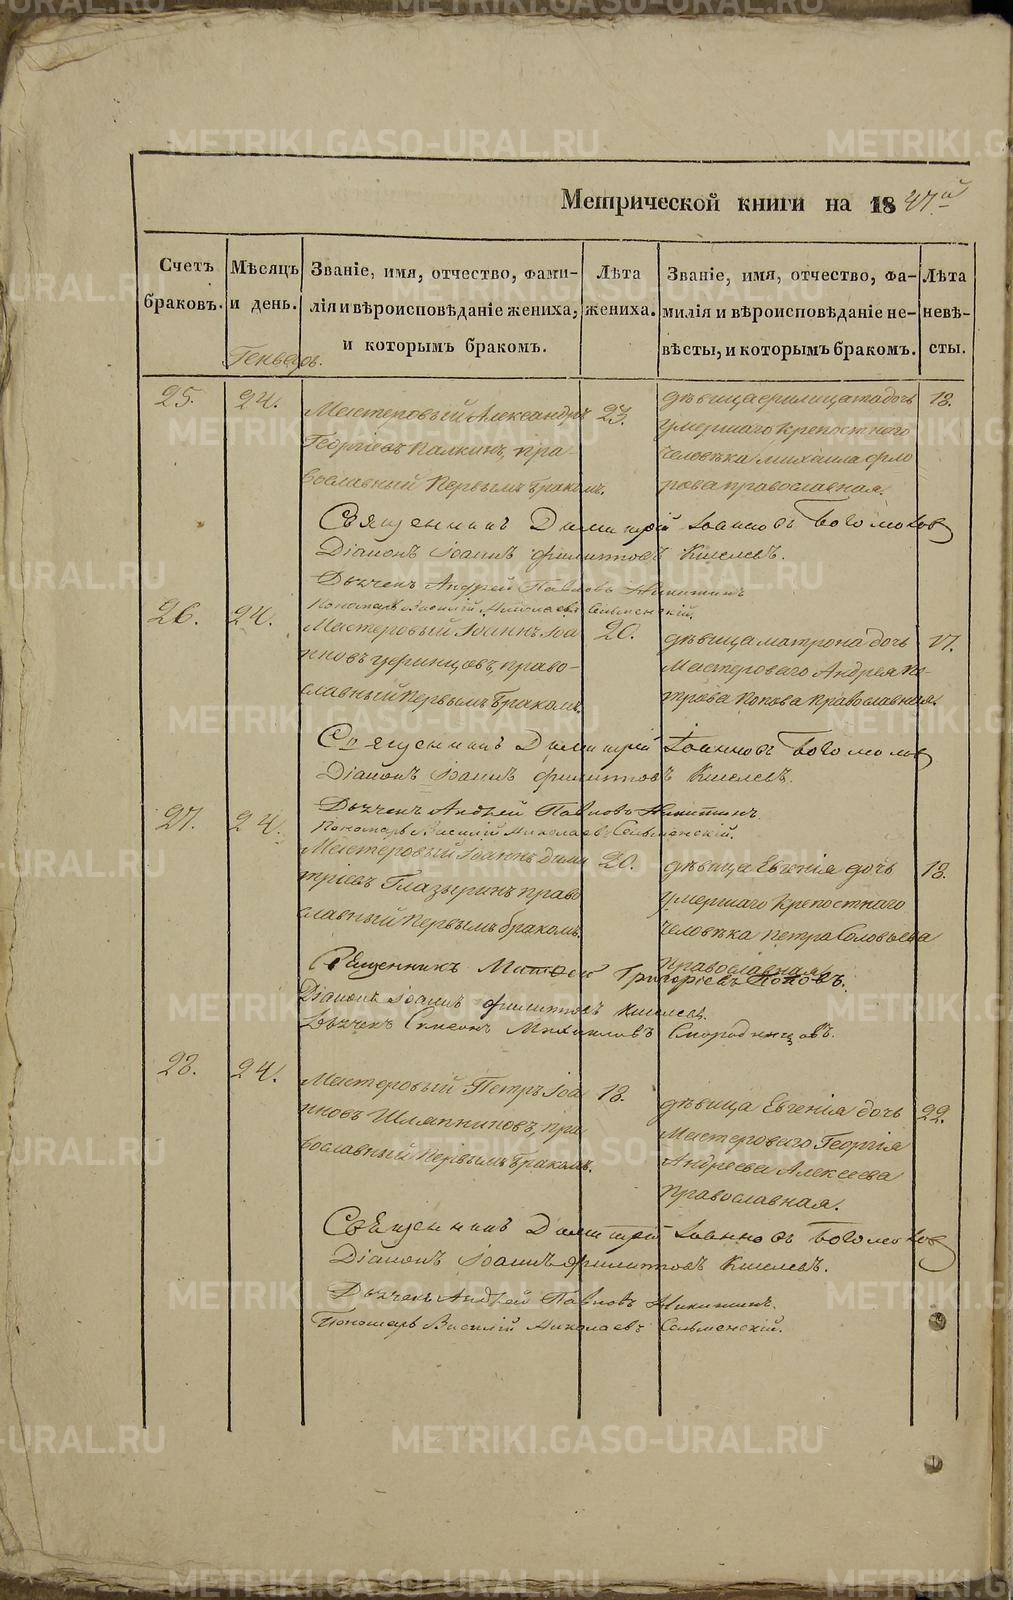 Метрической книги на 1847й
Счетъ браковъ.
Мѣсяцъ и день.
Званіе, имя, отчество, фами-
лія и вѣроисповѣданіе жениха,
и которымъ бракомъ.
Лѣта жениха.
Званіе, имя, отчество, фа-
милія и вѣроисповѣданіе не-
вѣсты, и которымъ бракомъ.
Лѣта невѣ-
сты.
Генварь.
25.
24.
Мастеровый Александръ
Георгіевъ Палкинъ, пра-
вославный первымъ бракомъ.
23.
дѣвица Филицата дочь
умершаго крепостнаго
человѣка Михаила Фло
рова православная.
18.
Священникъ Димитрій Іоанновъ Богомоловъ
Діаконъ Іоаннъ Филиповъ Киселевъ.
Дьячекъ Андрей Павловъ Никитинъ
Пономарь Василій Николаевъ Сельменскій.
26.
24.
Мастеровый Іоаннъ Іоа
нновъ Уфинцовъ, право-
славный первымъ бракомъ.
20.
дѣвица Матрона дочь
Мастероваго Андрея Пе-
трова Попова православная.
17.
Священникъ Димитрій Іоанновъ Богомоловъ
Діаконъ Іоаннъ Филиповъ Киселевъ.
Дьячекъ Андрей Павловъ Никитинъ.
Пономарь Василій Николаевъ Сельменскій.
27.
24.
Мастеровый Іоаннъ Дими
тріевъ Глазыринъ право
славный первымъ бракомъ.
20.
дѣвица Евгенія дочь
умершаго крепостнаго
человѣка Петра Соловьева
православная
18.
Священникъ Матвей Григоріевъ Поповъ.
Діаконъ Іоаннъ Филиповъ Киселевъ.
Дьячекъ Симеонъ Михаиловъ Смородинцовъ.
28.
24.
Мастеровый Петръ Іоа
нновъ Шляпниковъ, пра
вославный первымъ бракомъ.
18.
дѣвица Евгенія дочь
Мастероваго Георгія
Андреева Алексеева
православная.
22.
Священникъ Димитрій Іоанновъ Богомоловъ
Діаконъ Іоаннъ Филиповъ Киселевъ.
Дьячекъ Андрей Павловъ Никитинъ.
Пономарь Василій Николаевъ Сельменскій.
METRIKI.GASO-URAL.RU